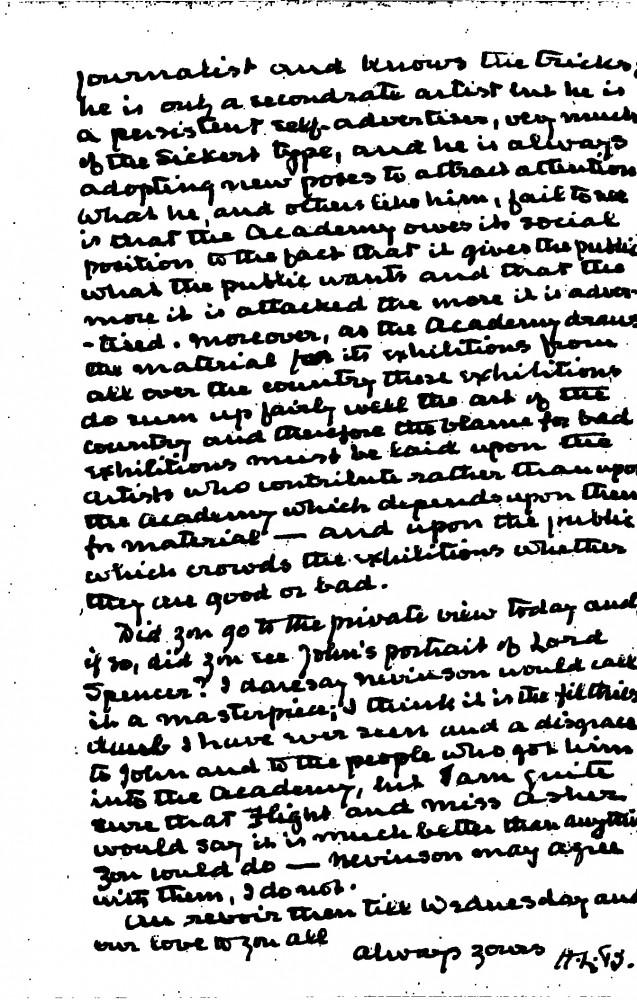 journalist and knows the tricks;
he is only a secondrate artist but he is
a persistent self-advertiser, very much
of the Sickert type, and he is always
adopting new poses to attract attention
What he, and others like him, fail to see
is that the Academy owes its social
position to the fact that it gives the public
what the public wants and that the
more it is attacked the more it is adver-
-tised. Moreover, as the Academy draws
the material for its exhibitions from
all over the country these exhibitions
do sum up fairly well the art of the
country and therefore the blame for bad
exhibitions must be laid upon the
artists who contribute rather than upon
the Academy which depends upon them
for material — and upon the public
which crowds the exhibitions whether
they are good or bad.
Did you go to the private view today and,
if so, did you see John's portrait of Lord
Spencer? I daresay Nevinson would call
it a masterpiece; I think it is the filthiest
daub I have ever seen and a disgrace
to John and to the people who got him
into the Academy, but I am quite
sure that Flight and Miss Asher
would say it is much better than anything
you could do — Nevinson may agree
with them, I do not.
Au revoir then till Wednesday and
our love to you all
always yours